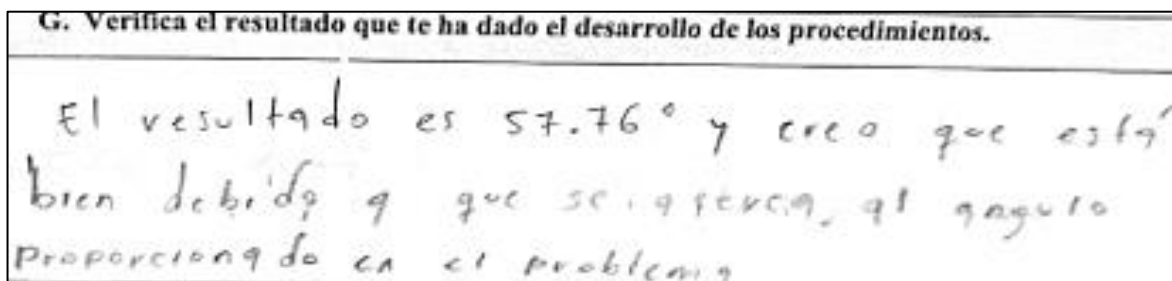 G. Verifica el resultado que te ha dado el desarrollo de los procedimientos.
El resultado es 57.76° y creo que está
bien debido a que se acerca, al angulo
proporcionado en el problema